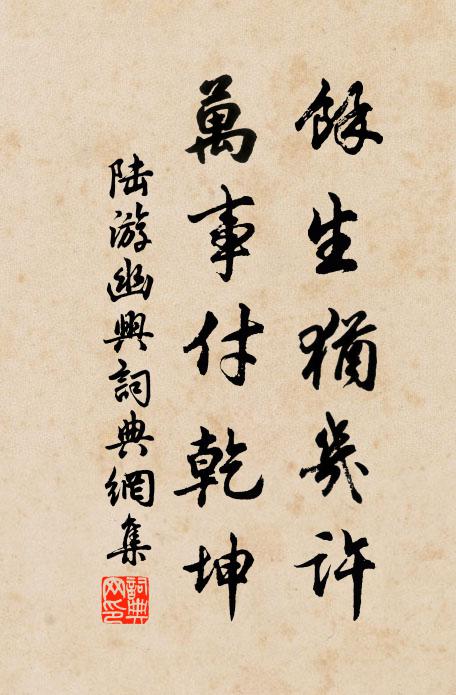 餘生猶幾許
萬事付乾坤
陆游幽興詞典網集
詞典網印